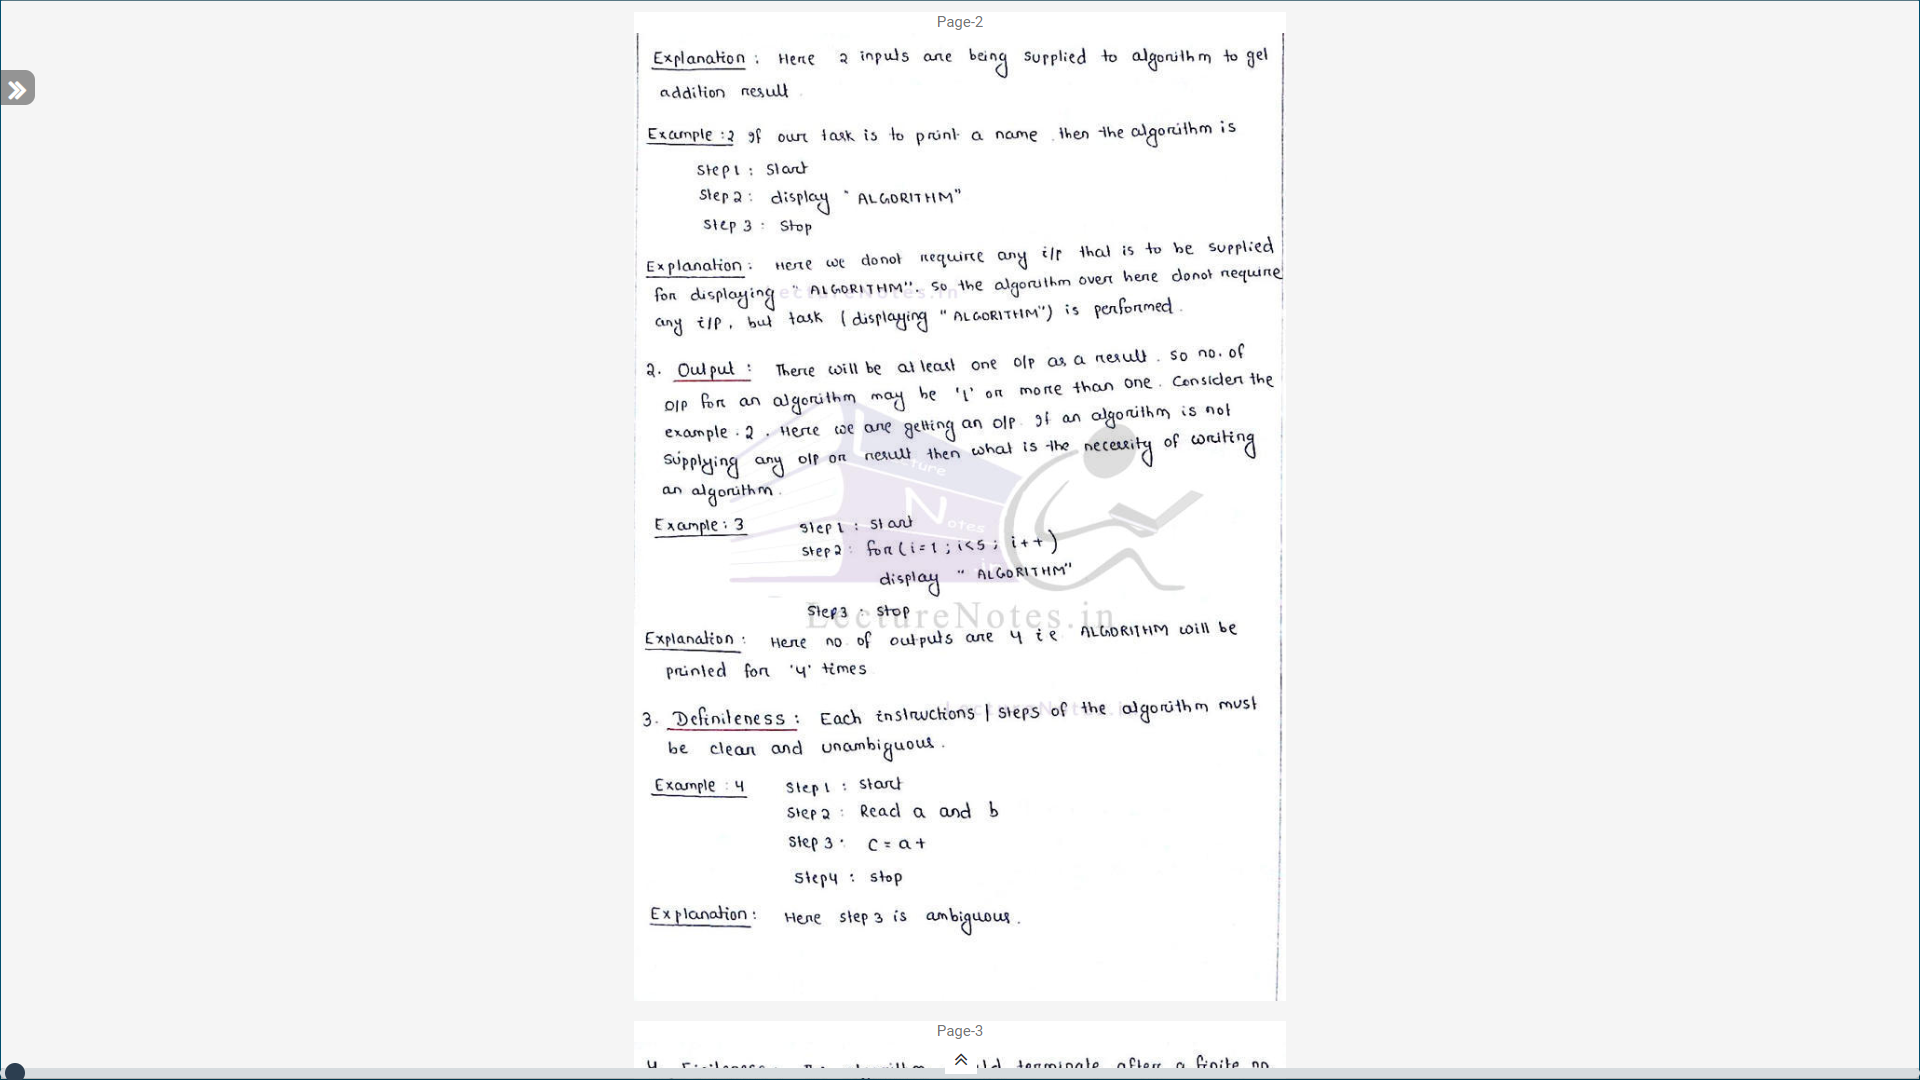 Page-2
Explanation : Here 2 inputs are being supplied to algorithm to get
addition result
Example :2 If our task is to print a name . then the algorithm is
Step 1 : Start
Step 2 : display " ALGORITHM"
Step 3 : Stop
Explanation : Here we donot require any i/p that is to be supplied
for displaying " ALGORITHM". So the algorithm over here donot require
any i/p, but task ( displaying " ALGORITHM") is performed.
2. Output : There will be at least one o/p as a result. So no. of
O/P for an algorithm may be '1' or more than one. Consider the
example . 2 . Here we are getting an o/p. If an algorithm is not
supplying any o/p or result then what is the necessity of writing
an algorithm.
Example : 3 Step 1 : Start
Step 2 : for ( i = 1 ; i<5 ; i++ )
display " ALGORITHM"
Step 3 : Stop
LectureNotes.in
Explanation : Here no of outputs are 4 i e ALGORITHM will be
printed for '4' times
3. Definiteness : Each instructions / steps of the algorithm must
be clear and unambiguous.
Example : 4 Step 1 : Start
Step 2 : Read a and b
Step 3 : c = a +
Step 4 : Stop
Explanation : Here step 3 is ambiguous.
Page-3
terminate after a finite no